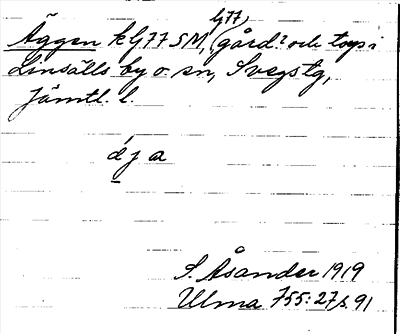 lj77,
Äggen k lj77 SM, (gård? och torp i
Linsälls by o. sn, Svegs tg,
Jämtl. l.
d j a
S. Åsander 1919
Ulma 755:27 s. 91